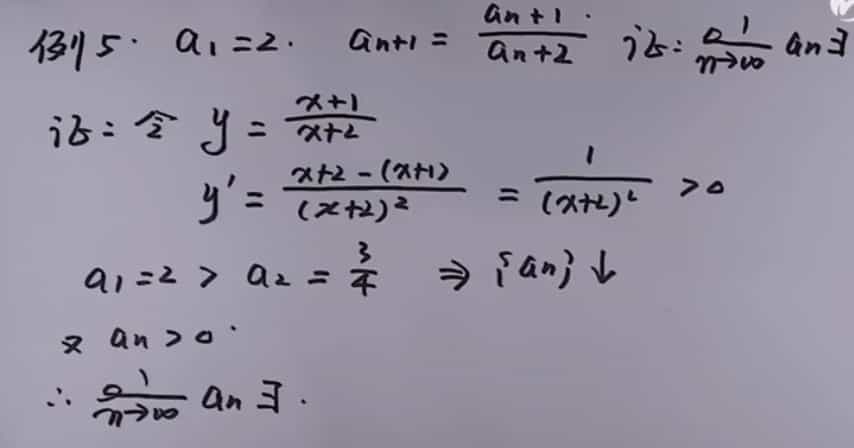 例5. a₁=2. aₙ₊₁ = (aₙ+1)/(aₙ+2) 证: lim n→∞ aₙ∃
证: 令 y = (x+1)/(x+2)
y' = (x+2-(x+1))/(x+2)² = 1/(x+2)² > 0
a₁=2 > a₂ = 3/4 ⇒ {aₙ}↓
又 aₙ>0.
∴ lim n→∞ aₙ∃.